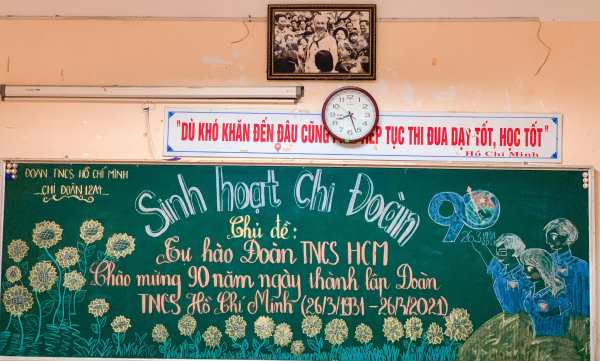 "DÙ KHÓ KHĂN ĐẾN ĐÂU CŨNG TIẾP TỤC THI ĐUA DẠY TỐT, HỌC TỐT"
Hồ Chí Minh
ĐOÀN TNCS HỒ CHÍ MINH
CHI ĐOÀN 12A4
Sinh hoạt Chi Đoàn
Chủ đề:
Tự hào Đoàn TNCS HCM
Chào mừng 90 năm ngày thành lập Đoàn
TNCS Hồ Chí Minh (26/3/1931 - 26/3/2021)
90